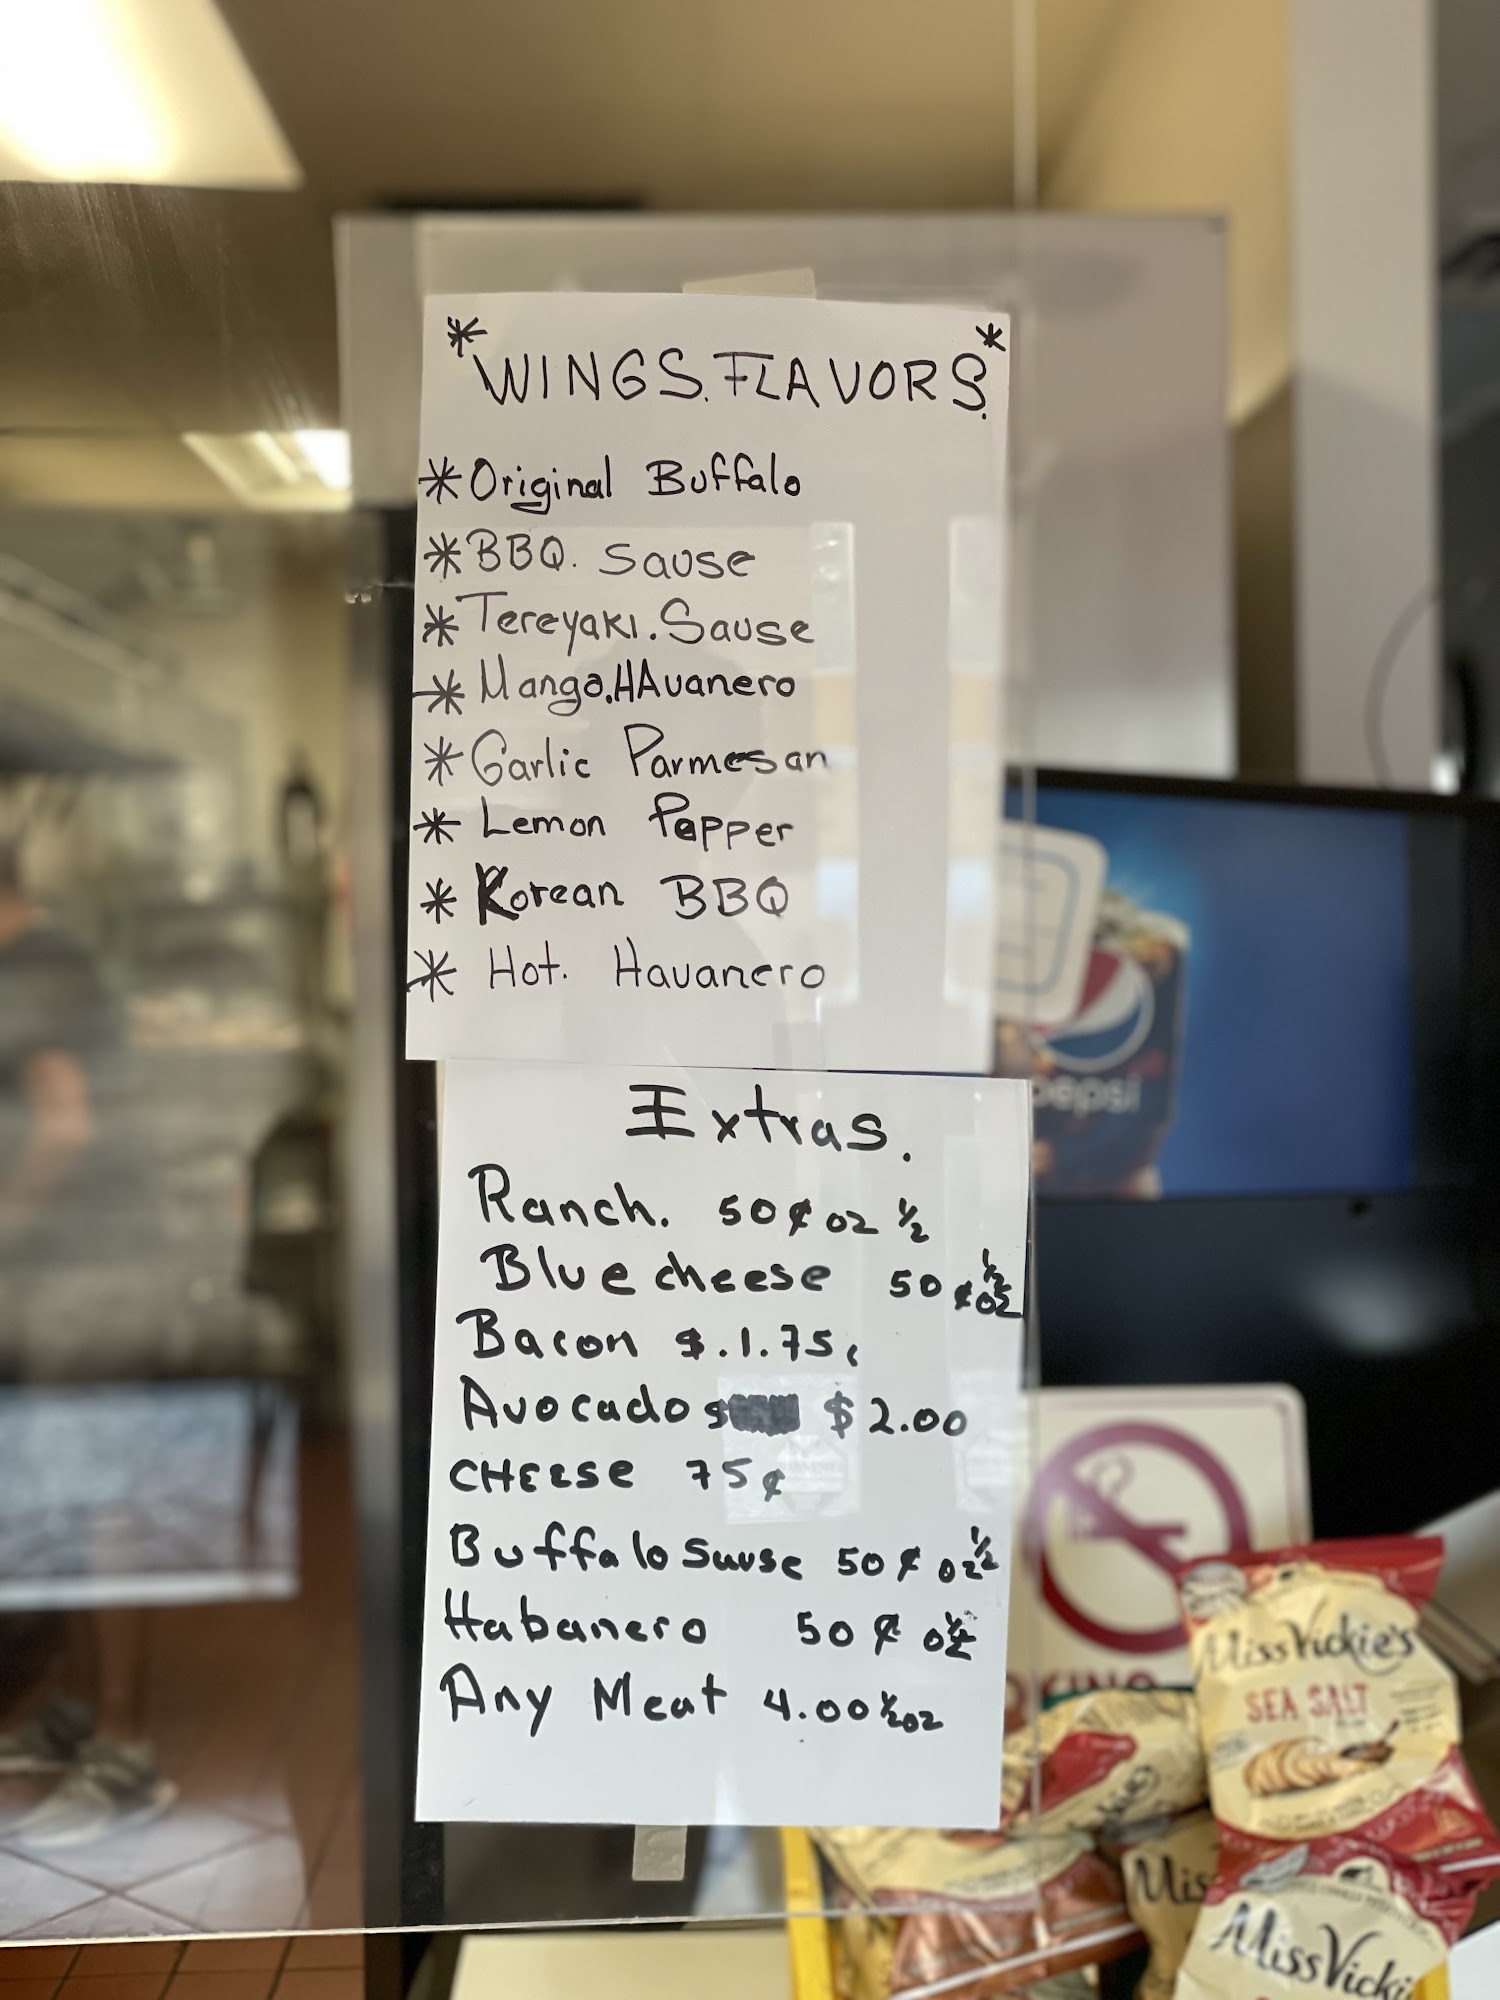 * WINGS. FLAVORS. *
* Original Buffalo
* BBQ. Sause
* Tereyaki. Sause
* Mango. HAvanero
* Garlic Parmesan
* Lemon Pepper
* Korean BBQ
* Hot. Havanero
Extras.
Ranch. 50¢ oz 1/2
Blue cheese 50¢ 1/2 oz
Bacon $.1.75.
Avocados $2.00
CHEESE 75¢
Buffalo Sause 50¢ oz 1/2
Habanero 50¢ oz 1/2
Any Meat 4.00 1/2 oz
pepsi
Miss Vickie's
SEA SALT
Miss Vicki